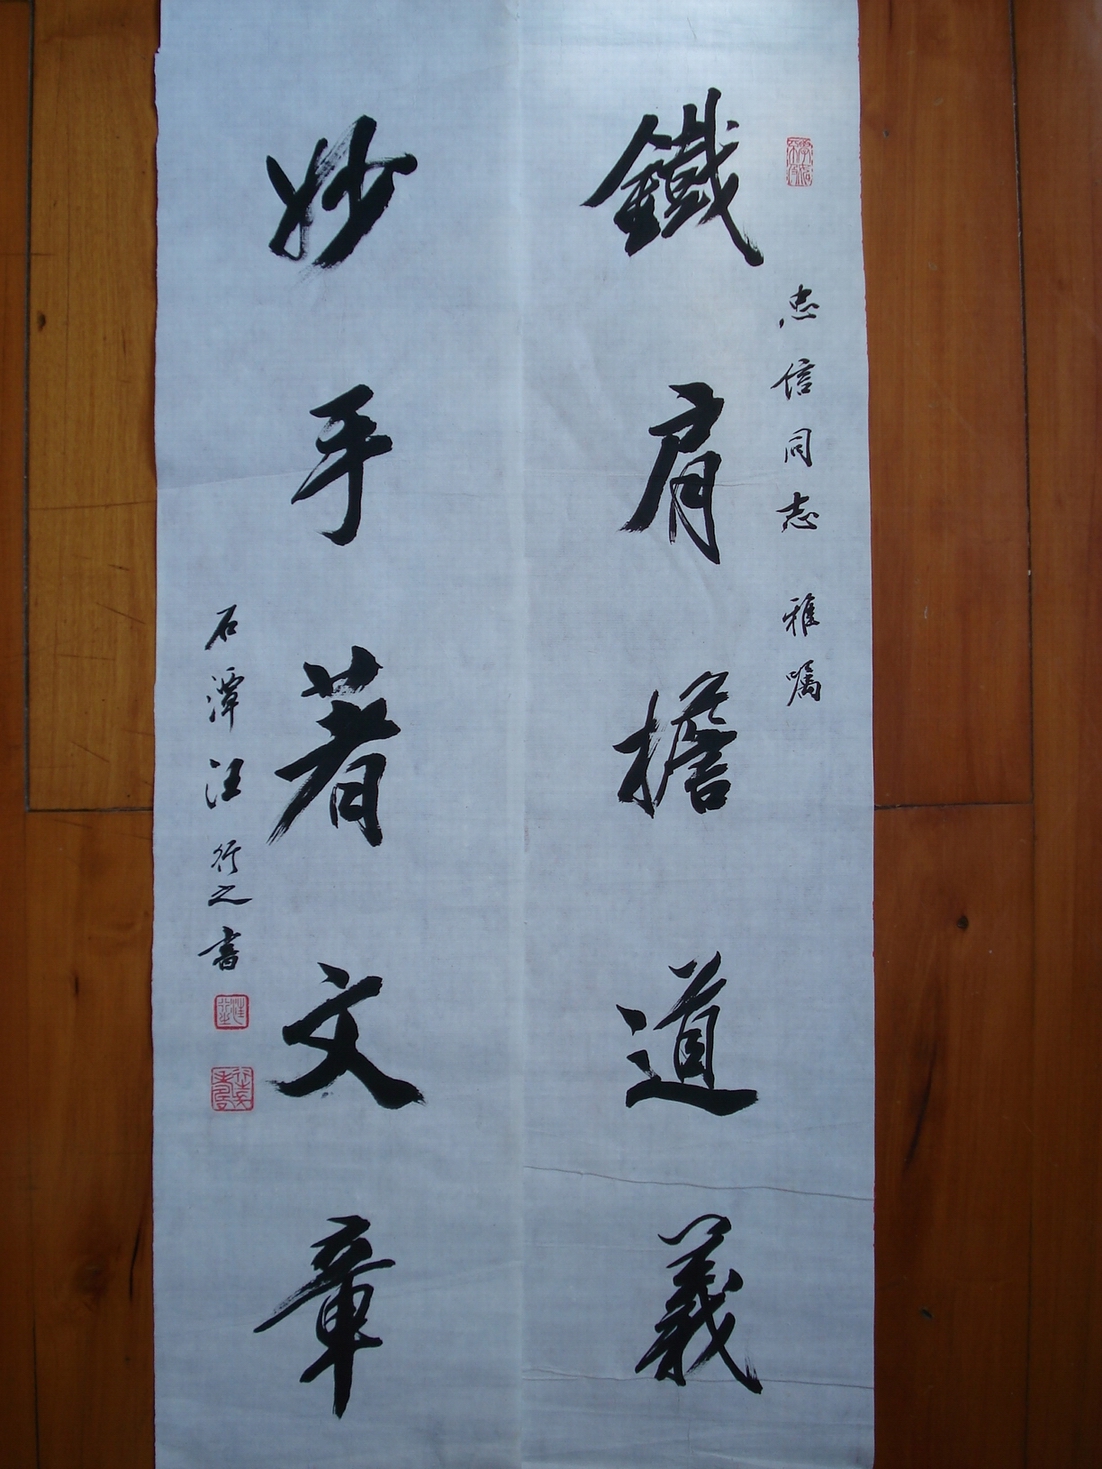 忠信同志 雅嘱
鐵肩擔道義
妙手著文章
石潭汪行之書